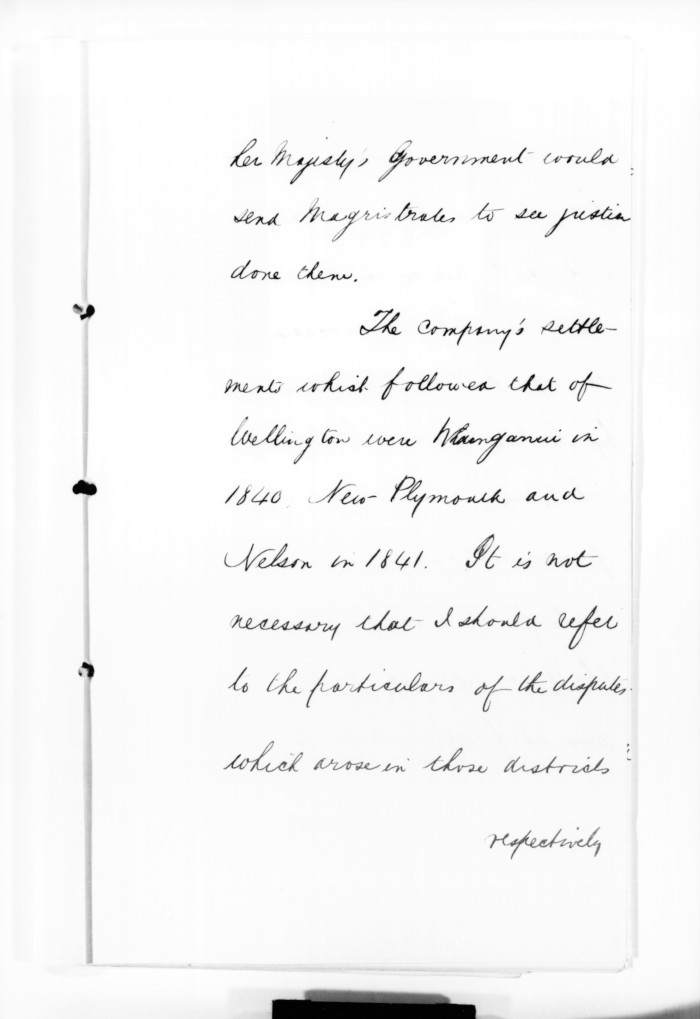 her Majesty's Government would
send Magistrates to see justice
done them.
The Company's settle-
ments which followed that of
Wellington were Whanganui in
1840, New Plymouth and
Nelson in 1841. It is not
necessary that I should refer
to the particulars of the disputes
which arose in those districts
respectively